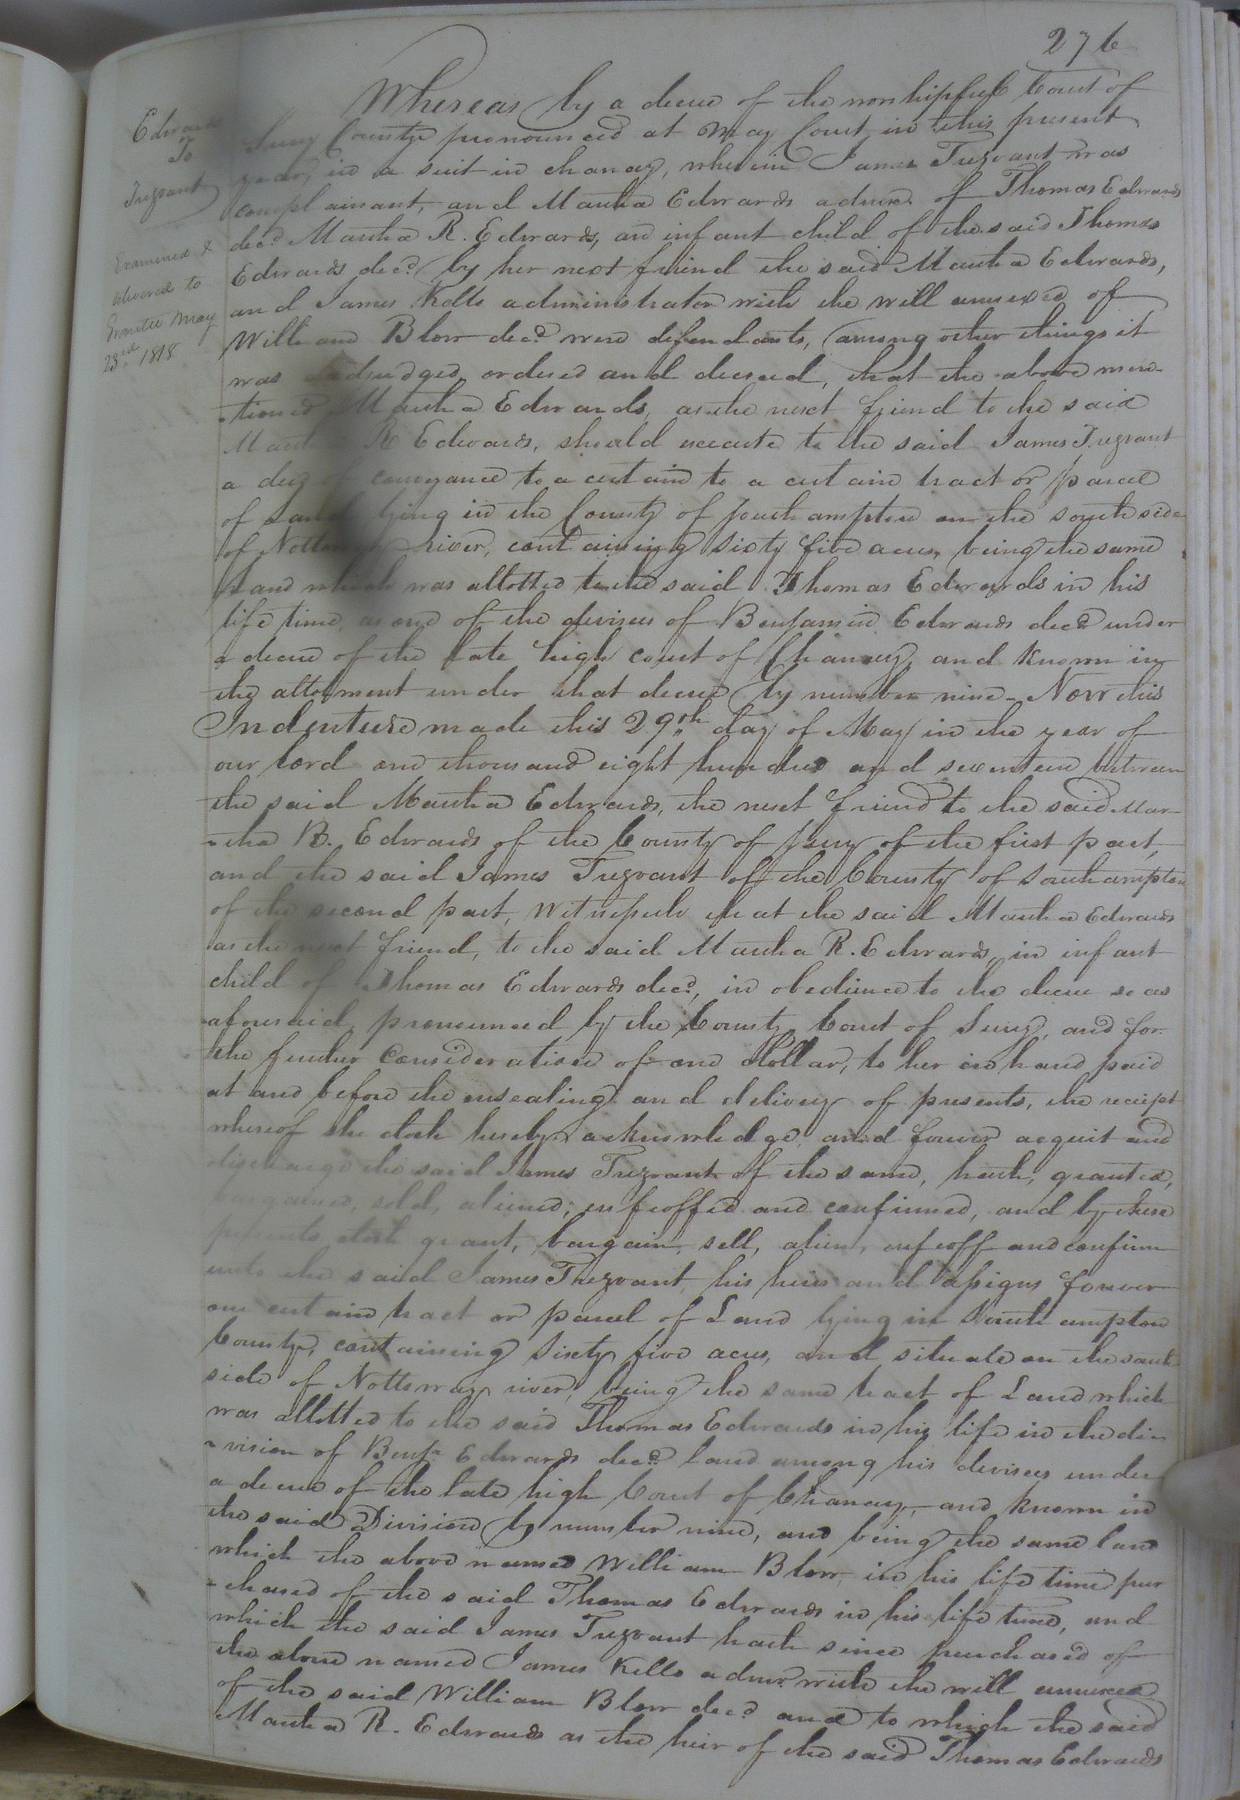 276
Edwards
To
Trezvant
Examined &
delivered to
Grantee May
23rd 1818
Whereas by a decree of the worshipfull Court of
Surry County pronounced at May Court in this present
year, in a suit in chancery, wherein James Trezvant was
complainant, and Martha Edwards admx. of Thomas Edwards
decd. Martha R. Edwards, an infant child of the said Thomas
Edwards decd. by her next friend the said Martha Edwards,
and James Kello administrator with the will annexed of
William Blow decd. were defendants, among other things it
was adjudged, ordered and decreed, that the above men-
-tioned Martha Edwards, as the next friend to the said
Martha R Edwards, should execute to the said James Trezvant
a deed of conveyance to a certain to a certain tract or parcel
of Land lying in the County of Southampton on the south side
of Nottoway river, containing Sixty five acres, being the same
Land which was allotted to the said Thomas Edwards in his
life time, as one of the devisees of Benjamin Edwards decd. under
a decree of the late high court of Chancery, and known in
the allotment under that decree by number nine - Now this
Indenture made this 29th day of May in the year of
our lord one thousand eight hundred and seventeen between
the said Martha Edwards, the next friend to the said Mar-
-tha R. Edwards of the County of Surry of the first part,
and the said James Trezvant of the County of Southampton
of the second part, Witnesseth that the said Martha Edwards
as the next friend, to the said Martha R. Edwards, in infant
child of Thomas Edwards decd., in obedience to the decree so as
aforesaid, pronounced by the County Court of Surry, and for
the further Consideration of one dollar, to her in hand paid
at and before the ensealing and delivery of presents, the receipt
whereof she doth hereby acknowledge and forever acquit and
discharge the said James Trezvant of the same, hath, granted,
bargained, sold, aliened, enfeoffed and confirmed, and by these
presents doth grant, bargain, sell, alien, enfeoff and confirm
unto the said James Trezvant, his heirs and assigns forever
one certain tract or parcel of Land lying in Southampton
County, containing Sixty five acres, and situate on the south
side of Nottoway river, being the same tract of Land which
was allotted to the said Thomas Edwards in his life in the di-
-vision of Benja. Edwards decd. land among his devisees under
a decree of the late high Court of Chancery, and known in
the said Division by number nine, and being the same land
which the above named William Blow, in his life time pur
-chased of the said Thomas Edwards in his life time, and
which the said James Trezvant hath since purchased of
the above named James Kello admr. with the will annexed
of the said William Blow decd. and to which the said
Martha R. Edwards as the heir of the said Thomas Edwards